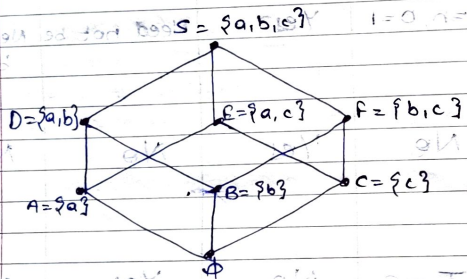 S = {a, b, c}
D={a,b}
E={a, c}
F = {b, c}
A={a}
B={b}
C={c}
φ